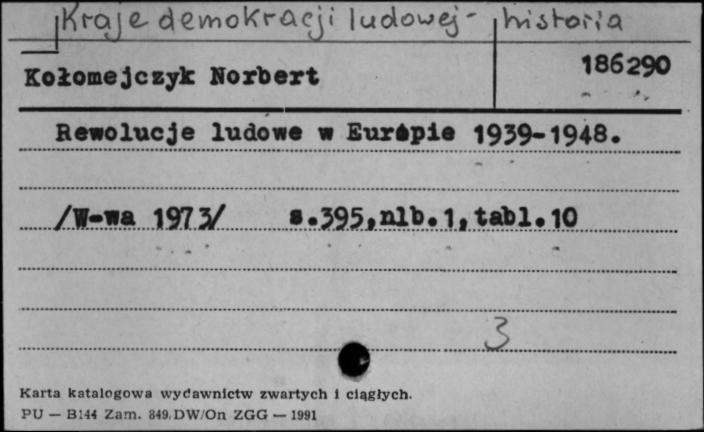 Kraje demokracji ludowej - historia
Kołomejczyk Norbert 186290
Rewolucje ludowe w Európie 1939-1948.
/W-wa 1973/ s.395,nlb.1,tabl.10
3
Karta katalogowa wydawnictw zwartych i ciągłych.
PU — B144 Zam. 849.DW/On ZGG — 1991